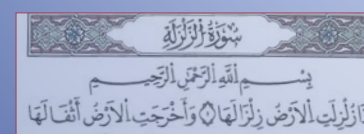 سُورَةُ الزَّلْزَلَةِ
بِسْمِ اللَّهِ الرَّحْمَٰنِ الرَّحِيمِ
زُلْزِلَتِ الْأَرْضُ زِلْزَالَهَا ۝١ وَأَخْرَجَتِ الْأَرْضُ أَثْقَالَهَا